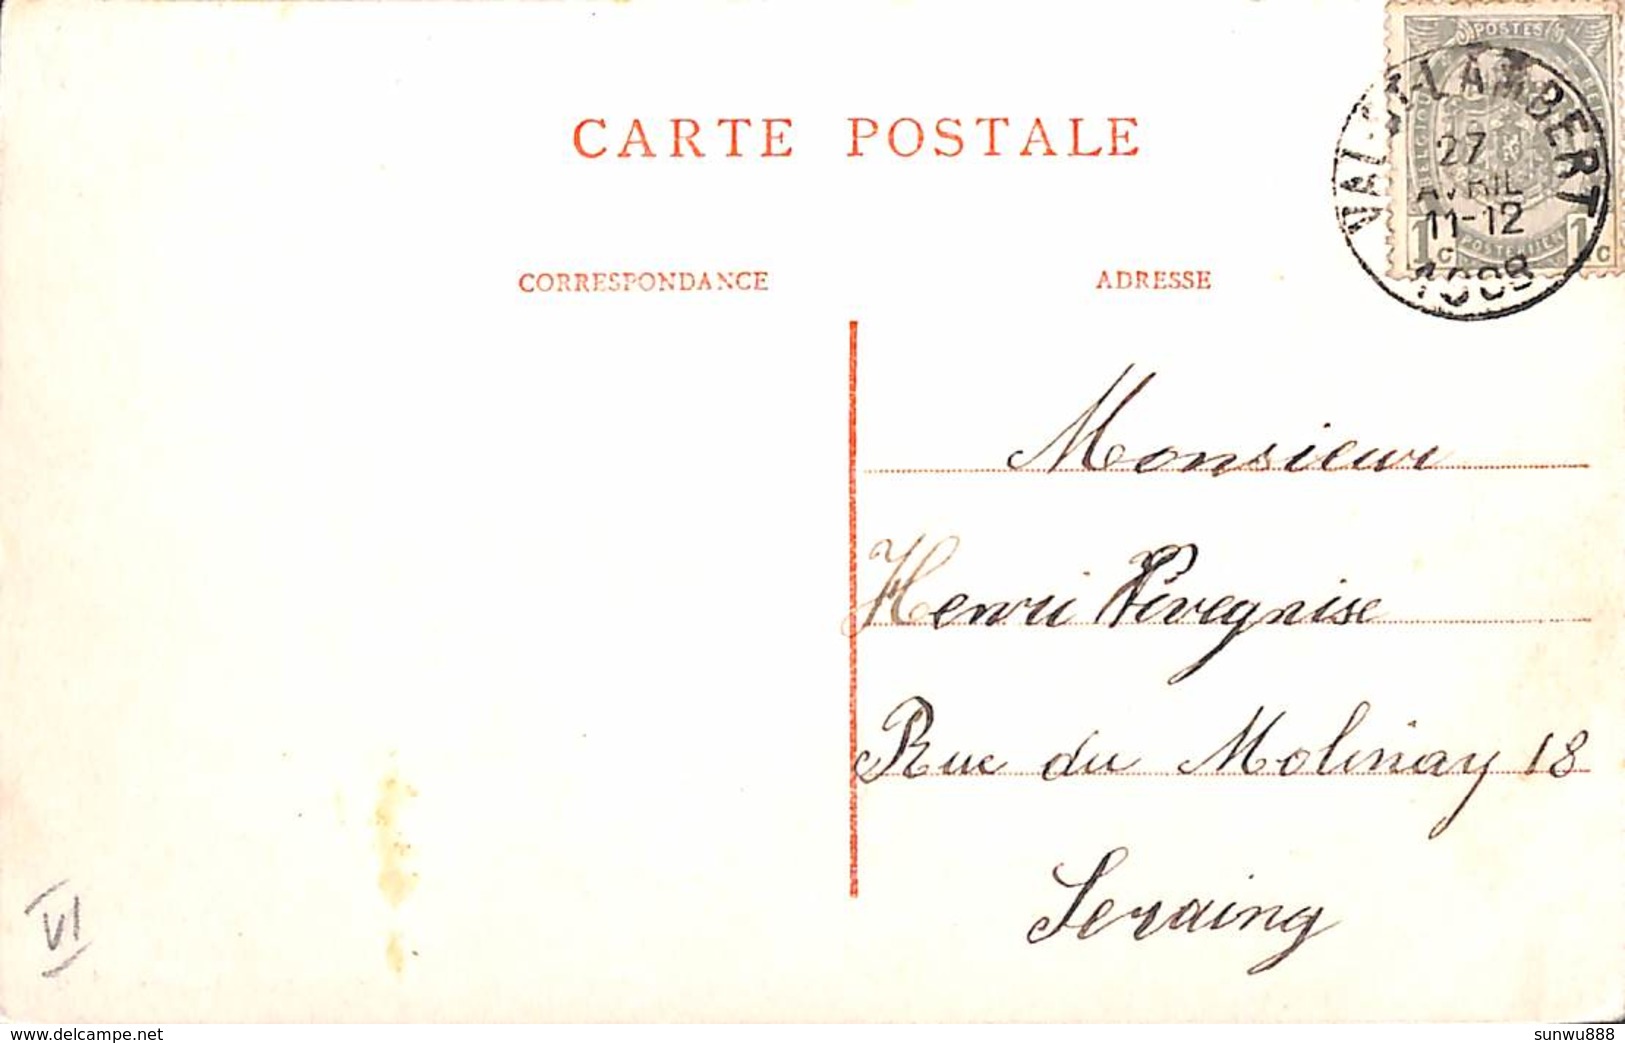 CARTE POSTALE
POSTES
BELGIQUE
VAL-ST-LAMBERT
27
AVRIL
11-12
1908
1 c POSTERIJEN 1 c
CORRESPONDANCE
ADRESSE
Monsieur
Henri
Rue du Molinay 18
Seraing
VI
www.delcampe.net
sunwu888